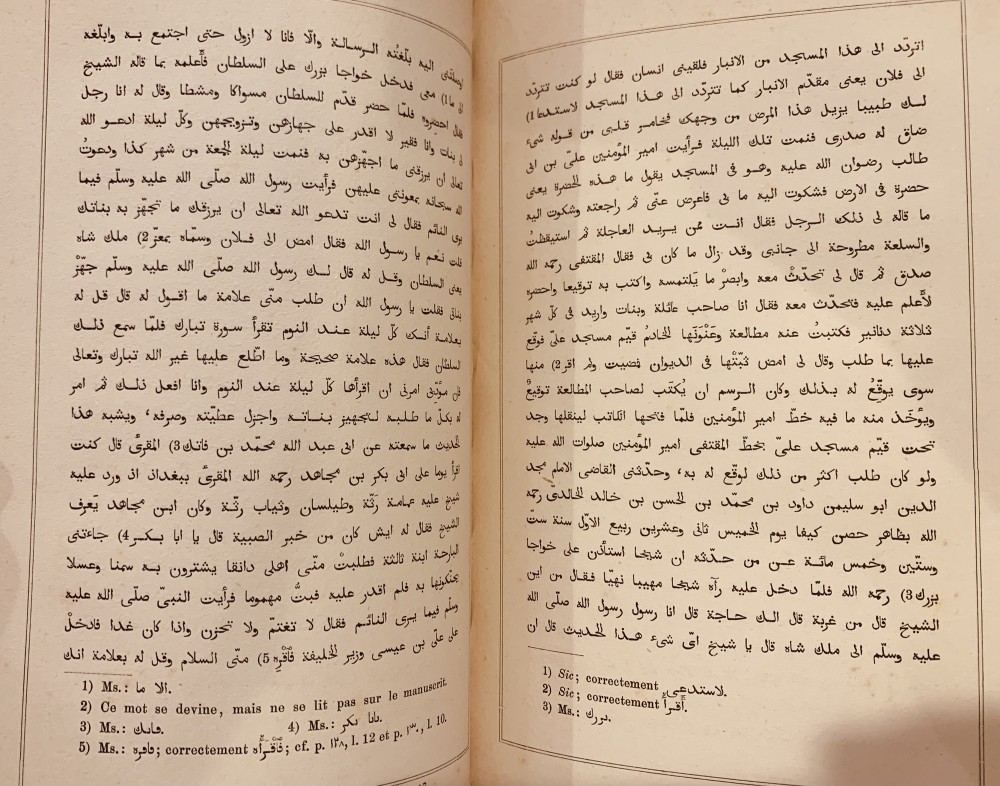 اتردّد الى هذا المسجد من الانبار فلقينى انسان فقال لو كنت تتردّد
الى فلان يعنى مقدّم الانبار كما تتردّد الى هذا المسجد لاستدعا 1)
لك طبيبا يزيل هذا المرض من وجهك فخامر قلبى من قوله شىء
ضاق له صدرى فنمت تلك الليلة فرأيت امير المؤمنين علىّ بن ابى
طالب رضوان الله عليه وهو فى المسجد يقول ما هذه الحضرة يعنى
حضرة فى الارض فشكوت اليه ما بى فاعرض عنّى ثم راجعته وشكوت اليه
ما قاله لى ذلك الرجل فقال انت ممّن يريد العاجلة ثم استيقظتُ
والسلعة مطروحة الى جانبى وقد زال ما كان بى فقال المقتفى رحمه الله
صدق ثم قال لى تحدّثْ معه وابصرْ ما يَلتمسه واكتب به توقيعا واحضره
لأعلم عليه فتحدّث معه فقال انا صاحب عائلة وبنات واريد فى كلّ شهر
ثلاثة دنانير فكتبتُ عنه مطالعة وعَنْوَنها الخادمُ قيّم مسجد علىّ فوقّع
عليها بما طلب وقال لى امض ثَبّتْها فى الديوان فمضيت ولم اقر 2) منها
سوى يوقّعُ له بذلك وكان الرسم ان يُكتب لصاحب المطالعة توقيعٌ
ويؤخَذ منه ما فيه خطّ امير المؤمنين فلمّا فتحها الكاتب لينقلها وجد
تحت قيّم مسجد علىّ بخطّ المقتفى امير المؤمنين صلوات الله عليه
ولو كان طلب اكثر من ذلك لوقّع له به، وحدّثنى القاضى الامام مجد
الدين ابو سليمن داود بن محمّد بن الحسن بن خالد الخالدىّ رحمه
الله بظاهر حصن كيفا يوم الخميس ثانى وعشرين ربيع الاوّل سنة ستّ
وستّين وخمس مائة عن من حدّثه ان شيخا استأذن على خواجا
بزرك 3) رحمه الله فلمّا دخل عليه رآه شيخا مهيبا بَهيّا فقال من اين
الشيخ قال من غربة قال الك حاجة قال انا رسول رسول الله صلّى الله
عليه وسلّم الى ملك شاه قال يا شيخ اىّ شىء هذا الحديث قال ان
1) Sic; correctement لاستدعى.
2) Sic; correctement أقرأ.
3) Ms.: بررك.
اوصلتنى اليه بلّغتُه الرسالة والّا فانا لا ازول حتى اجتمع به وابلّغه
الى ما 1) معى فدخل خواجا بزرك على السلطان فأعلمه بما قاله الشيخ
فقال احضروه فلمّا حضر قدّم للسلطان مسواكا ومشطا وقال له انا رجل
لى بنات وانا فقير لا اقدر على جهازهن وتزويجهن وكلّ ليلة ادعو الله
تعالى ان يرزقنى ما اجهّزهن به فنمت ليلة الجمعة من شهر كذا ودعوتُ
الله سبحانه بمعونتى عليهن فرأيت رسول الله صلّى الله عليه وسلّم فيما
يرى النائم فقال لى انت تدعو الله تعالى ان يرزقك ما تجهّز به بناتك
قلت نعم يا رسول الله فقال امض الى فلان وسمّاه بمعزّ 2) ملك شاه
يعنى السلطان وقل له قال لك رسول الله صلّى الله عليه وسلّم جهّزْ
بناتى فقلت يا رسول الله ان طلب منّى علامة ما اقول له قال قل له
بعلامة أنك كلّ ليلة عند النوم تقرأ سورة تبارك فلمّا سمع ذلك
السلطان فقال هذه علامة صحيحة وما اطّلع عليها غير الله تبارك وتعالى
فإن مؤدّبى امرنى ان اقرأها كلّ ليلة عند النوم وانا افعل ذلك ثم امر
له بكلّ ما طلبه لتجهيز بناته واجزل عطيّته وصرفه، ويشبه هذا
الحديث ما سمعته عن ابى عبد الله محمّد بن فاتك 3) المقرئ قال كنت
اقرأ يوما على ابى بكر بن مجاهد رحمه الله المقرئ ببغداذ اذ ورد عليه
شيخ عليه عمامة رَثّة وطيلسان وثياب رثّة وكان ابن مجاهد يَعرف
الشيخ فقال له ايش كان من خبر الصبية قال يا ابا بكر 4) جاءتنى
البارحة ابنة ثالثة فطلبتْ منّى اهلى دانقا يشترون به سمنا وعسلا
يحنّكونها به فلم اقدر عليه فبتُّ مهموما فرأيت النبىّ صلّى الله عليه
وسلّم فيما يرى النائم فقال لا تغتمّ ولا تحزن واذا كان غدا فادخلْ
على علىّ بن عيسى وزير الخليفة فأقْرِه 5) منّى السلام وقل له بعلامة انك
1) Ms.: الا ما.
2) Ce mot se devine, mais ne se lit pas sur le manuscrit.
3) Ms.: فانك. 4) Ms.: بابا بكر.
5) Ms.: فاقره; correctement فَأَقْرَأْه; cf. p. ١٣٨, l. 12 et p. ١٣٠, l. 10.